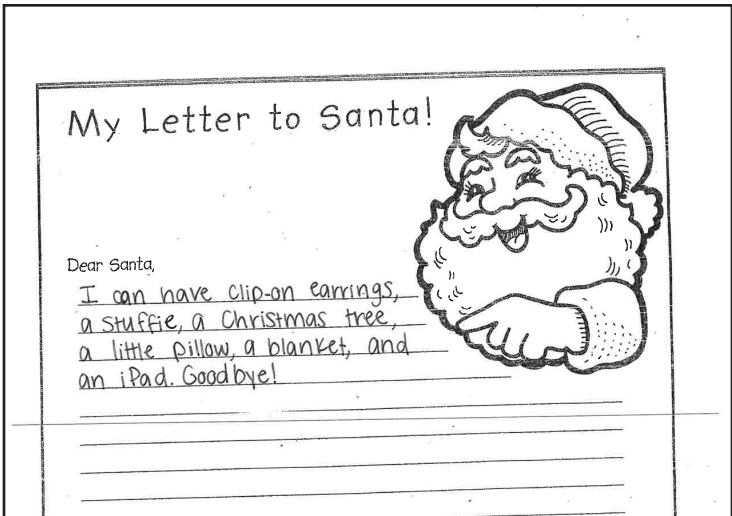 My Letter to Santa!
Dear Santa,
I can have clip-on earrings,
a stuffie, a Christmas tree,
a little pillow, a blanket, and
an iPad. Goodbye!